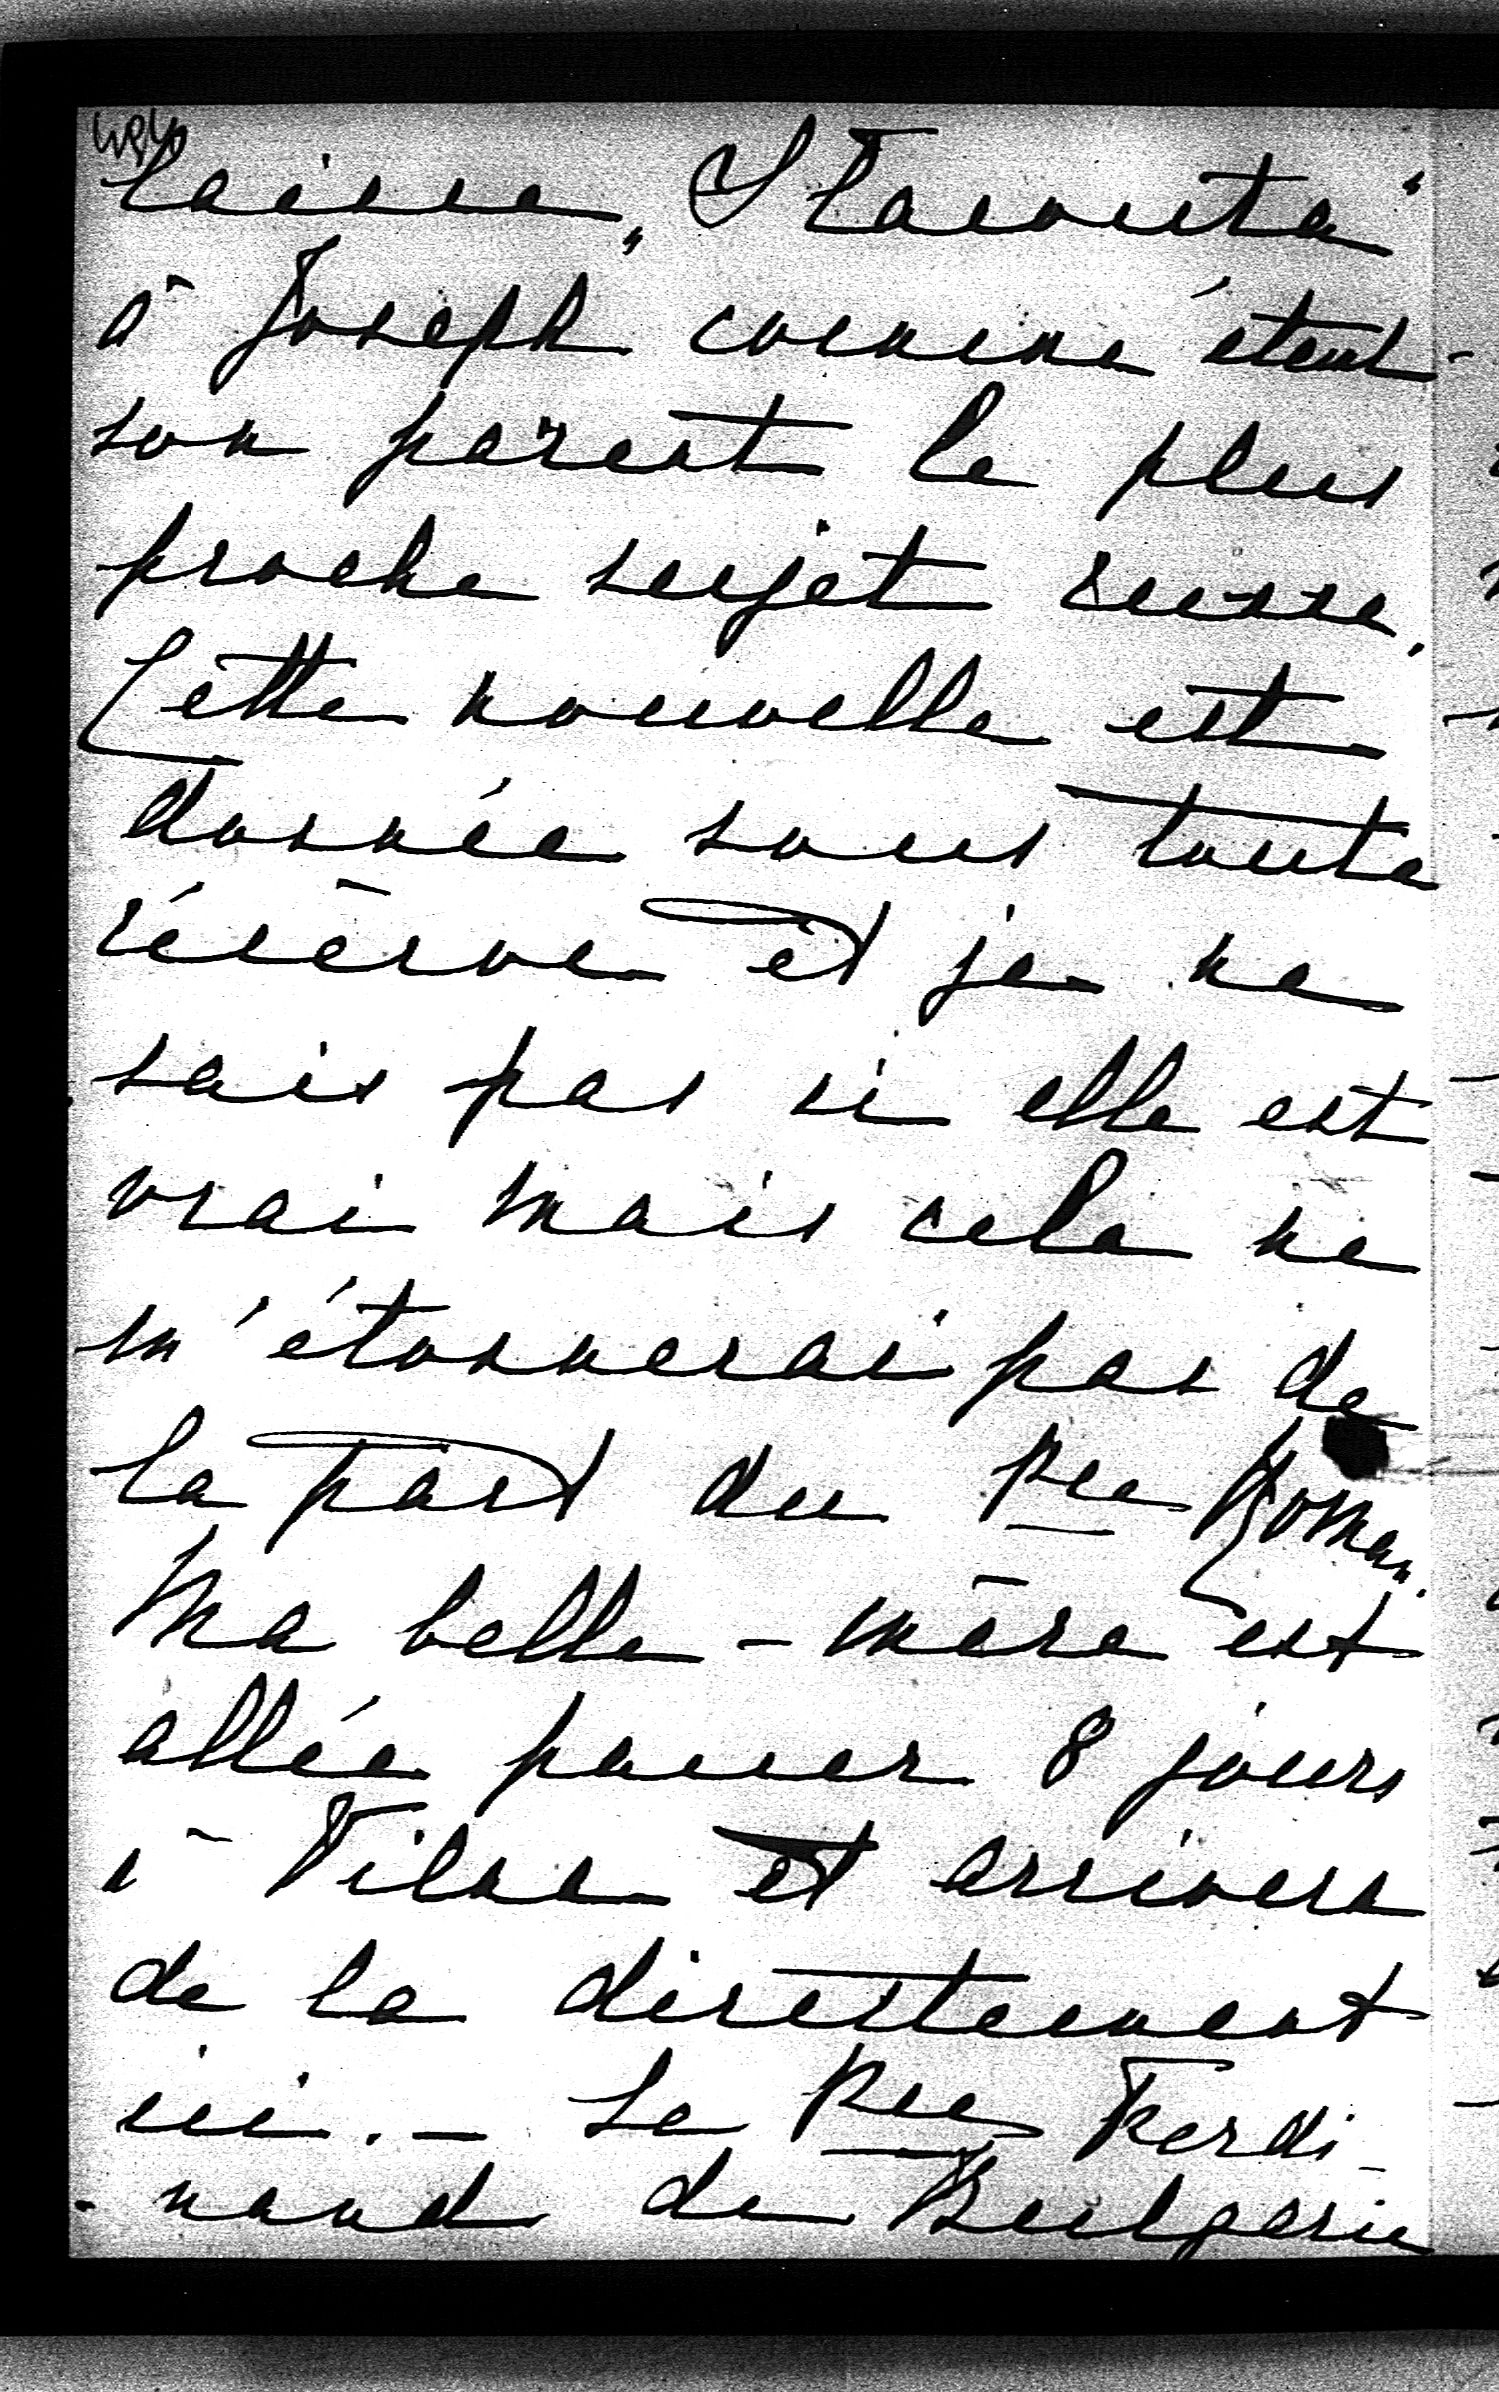 laisse „Slavouta“
à Joseph comme étant
son parent le plus
proche sujet russe.
Cette nouvelle est
donnée sous toute
réserve et je ne
sais pas si elle est
vrai mais cela ne
m'étonnerai pas de
la part du Pce Roman.
Ma belle-mère est
allée passer 8 jours
à Vilna et arrivera
de la directement
ici. – Le Pce Ferdi-
-nand de Bulgarie